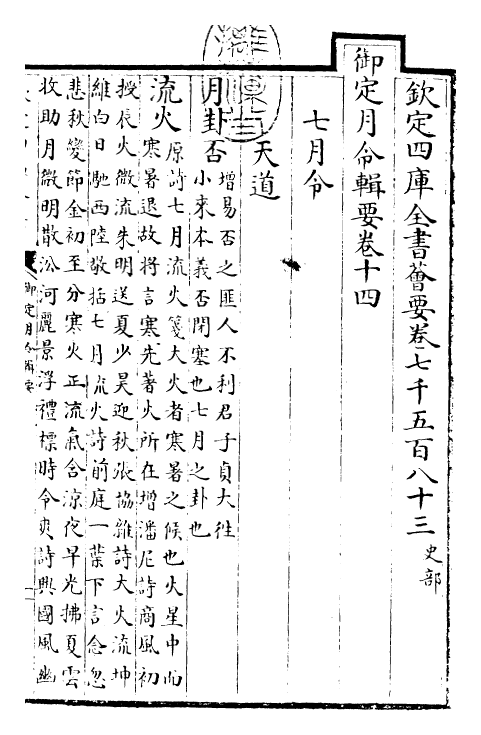 欽定四庫全書薈要卷七千五百八十三 史部
御定月令輯要卷十四
七月令
天道
月卦否 增易否之匪人不利君子貞大往
小來本義否閉塞也七月之卦也
流火 原詩七月流火箋大火者寒暑之候也火星中而
寒暑退故將言寒先著火所在增潘尼詩商風初
授辰火微流朱明送夏少昊迎秋張協雜詩大火流坤
維白日馳西陸敬括七月流火詩前庭一葉下言念忽
悲秋變節金初至分寒火正流氣含涼夜早光拂夏雲
收助月微明散沿河麗景浮禮標時令爽詩興國風幽
御定月令輯要